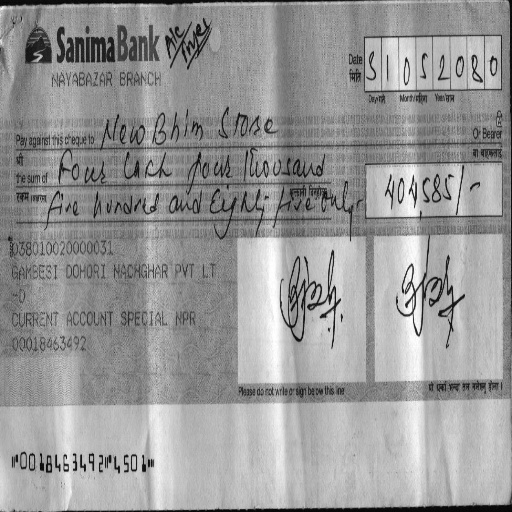 Sanima Bank A/C Payee
NAYABAZAR BRANCH
Date 31052080
मिति Day/गते Month/महिना Year/साल
Pay against this cheque to New Bhim Store Or Bearer
श्री वा वाहकलाई
the sum of Four Lack four thousand
रकम five hundred and Eighty five only 404,585/-
038010020000031
GAMBESI DOHORI NACHGHAR PVT LT
-D
CURRENT ACCOUNT SPECIAL NPR
00018463492
Please do not write or sign below this line
⑈0018463492⑈4501⑈